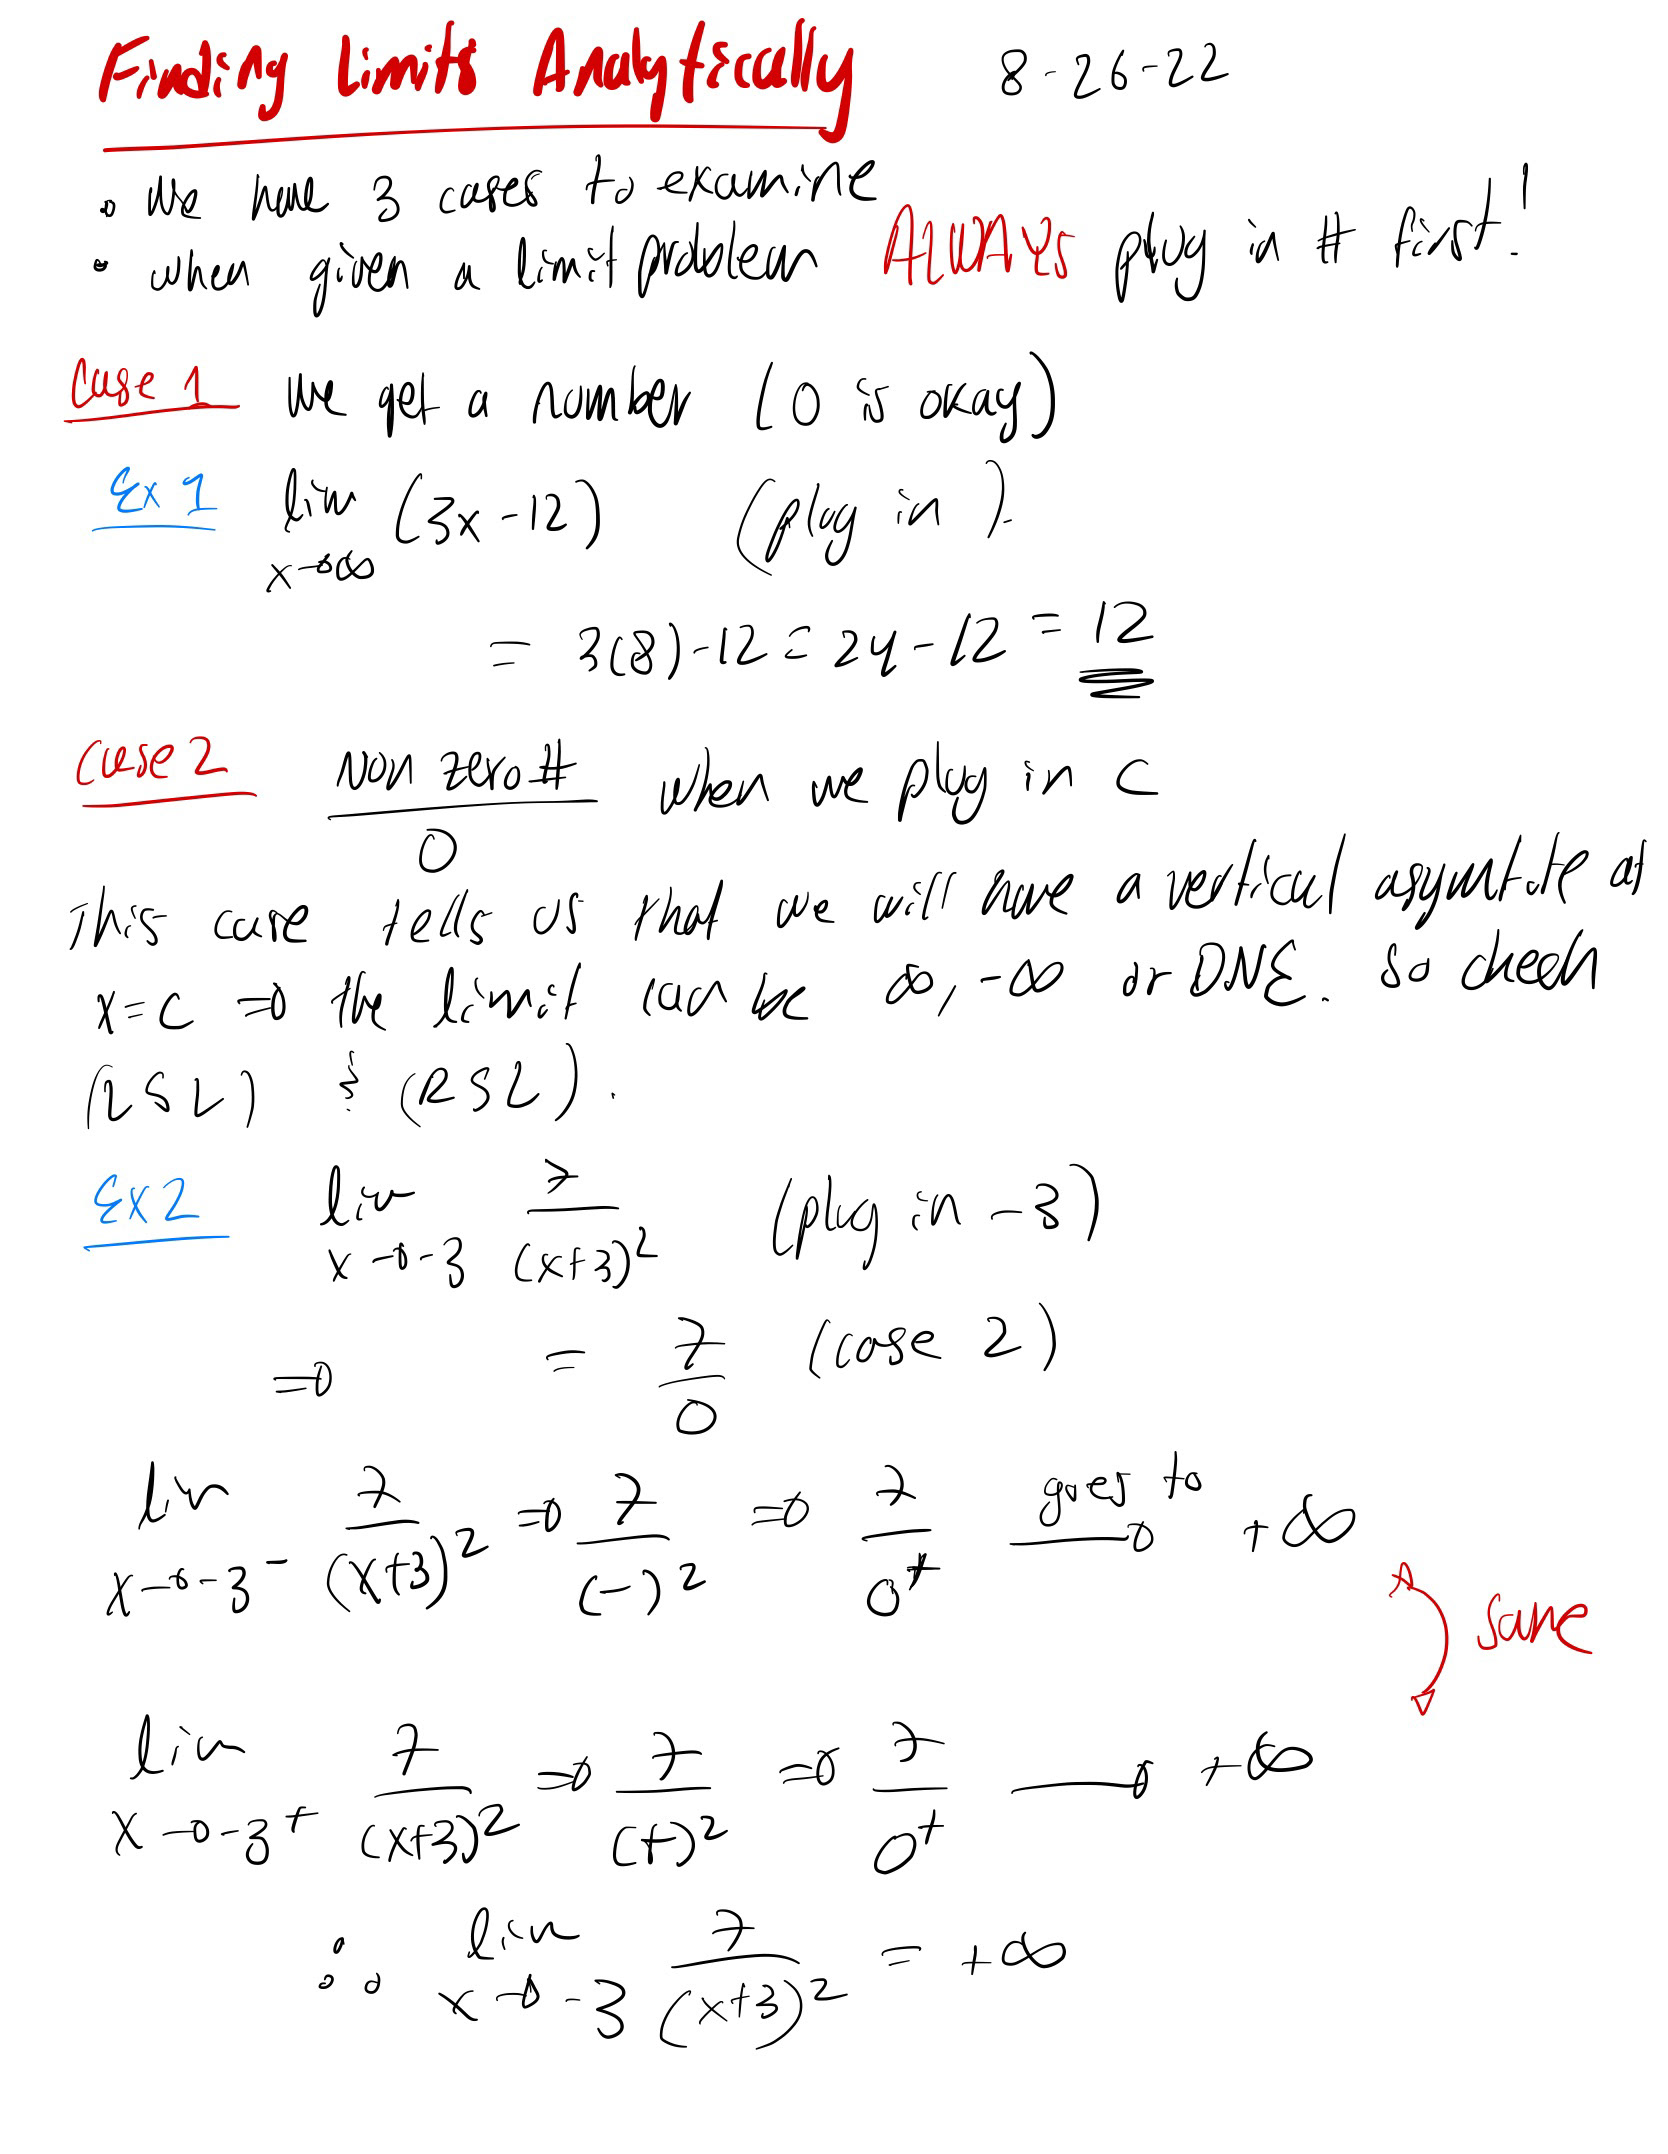 Finding Limits Analytically 8-26-22
• We have 3 cases to examine
• when given a limit problem ALWAYS plug in # first!
Case 1 We get a number (0 is okay)
Ex 1 lim x→∞ (3x-12) (plug in ).
= 3(8)-12 = 24-12 = 12
Case 2 Non zero # / 0 when we plug in C
This case tells us that we will have a vertical asymtote at
x=c ⇒ the limit can be ∞, -∞ or DNE. So check
(LSL) & (RSL).
Ex 2 lim x→-3 7/(x+3)² (plug in -3)
⇒ = 7/0 (case 2)
lim x→-3⁻ 7/(x+3)² ⇒ 7/(-)² ⇒ 7/0⁺ goes to → +∞
same
lim x→-3⁺ 7/(x+3)² ⇒ 7/(+)² ⇒ 7/0⁺ → +∞
∴ lim x→-3 7/(x+3)² = +∞